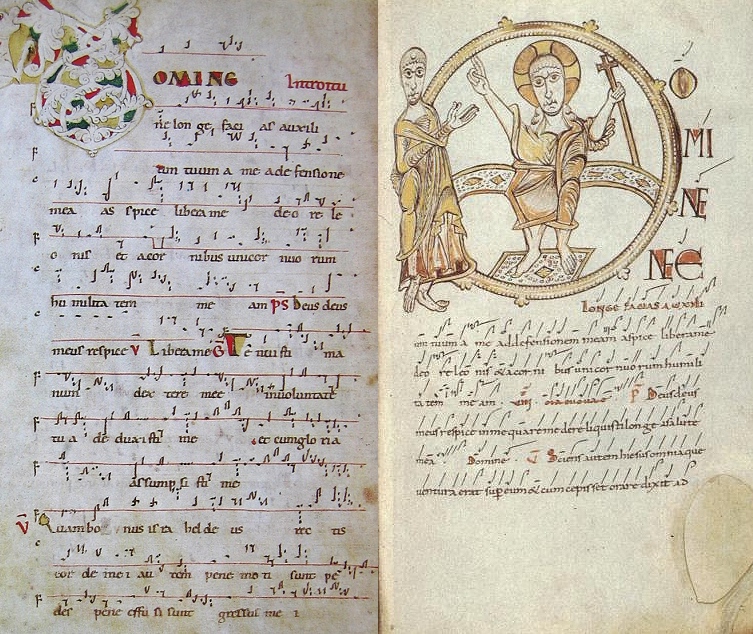 OMINE Introitu
ne lon ge faci as auxili
um tuum a me ade fensione
mea as spice libera me deo re le
o nis et acor nibus unicor nuo rum
hu milita tem me am PS Deus deus
meus respice V Libera me G Te nui sti ma
num dex tere mee in uoluntate
tu a de duxi sti me et cum glo ria
assump si sti me
V Quam bo nus isra hel de us rec tis
cor de me i au tem pene mo ti sunt pe
des pene effu si sunt gressus me i
O
MI
NE
NE
LONGE FACIAS AUXILI
um tuum a me addefensionem meam aspice libera me
deo re leo nis & acor ni bus unicor nuo rum humili
ta tem me am P Deus deus
meus respice in me quare me dereliquisti longe asalute
mea Domine V Sciens autem hiesus omnia que
uentura erat super eum & cum cepisset orare dixit ad